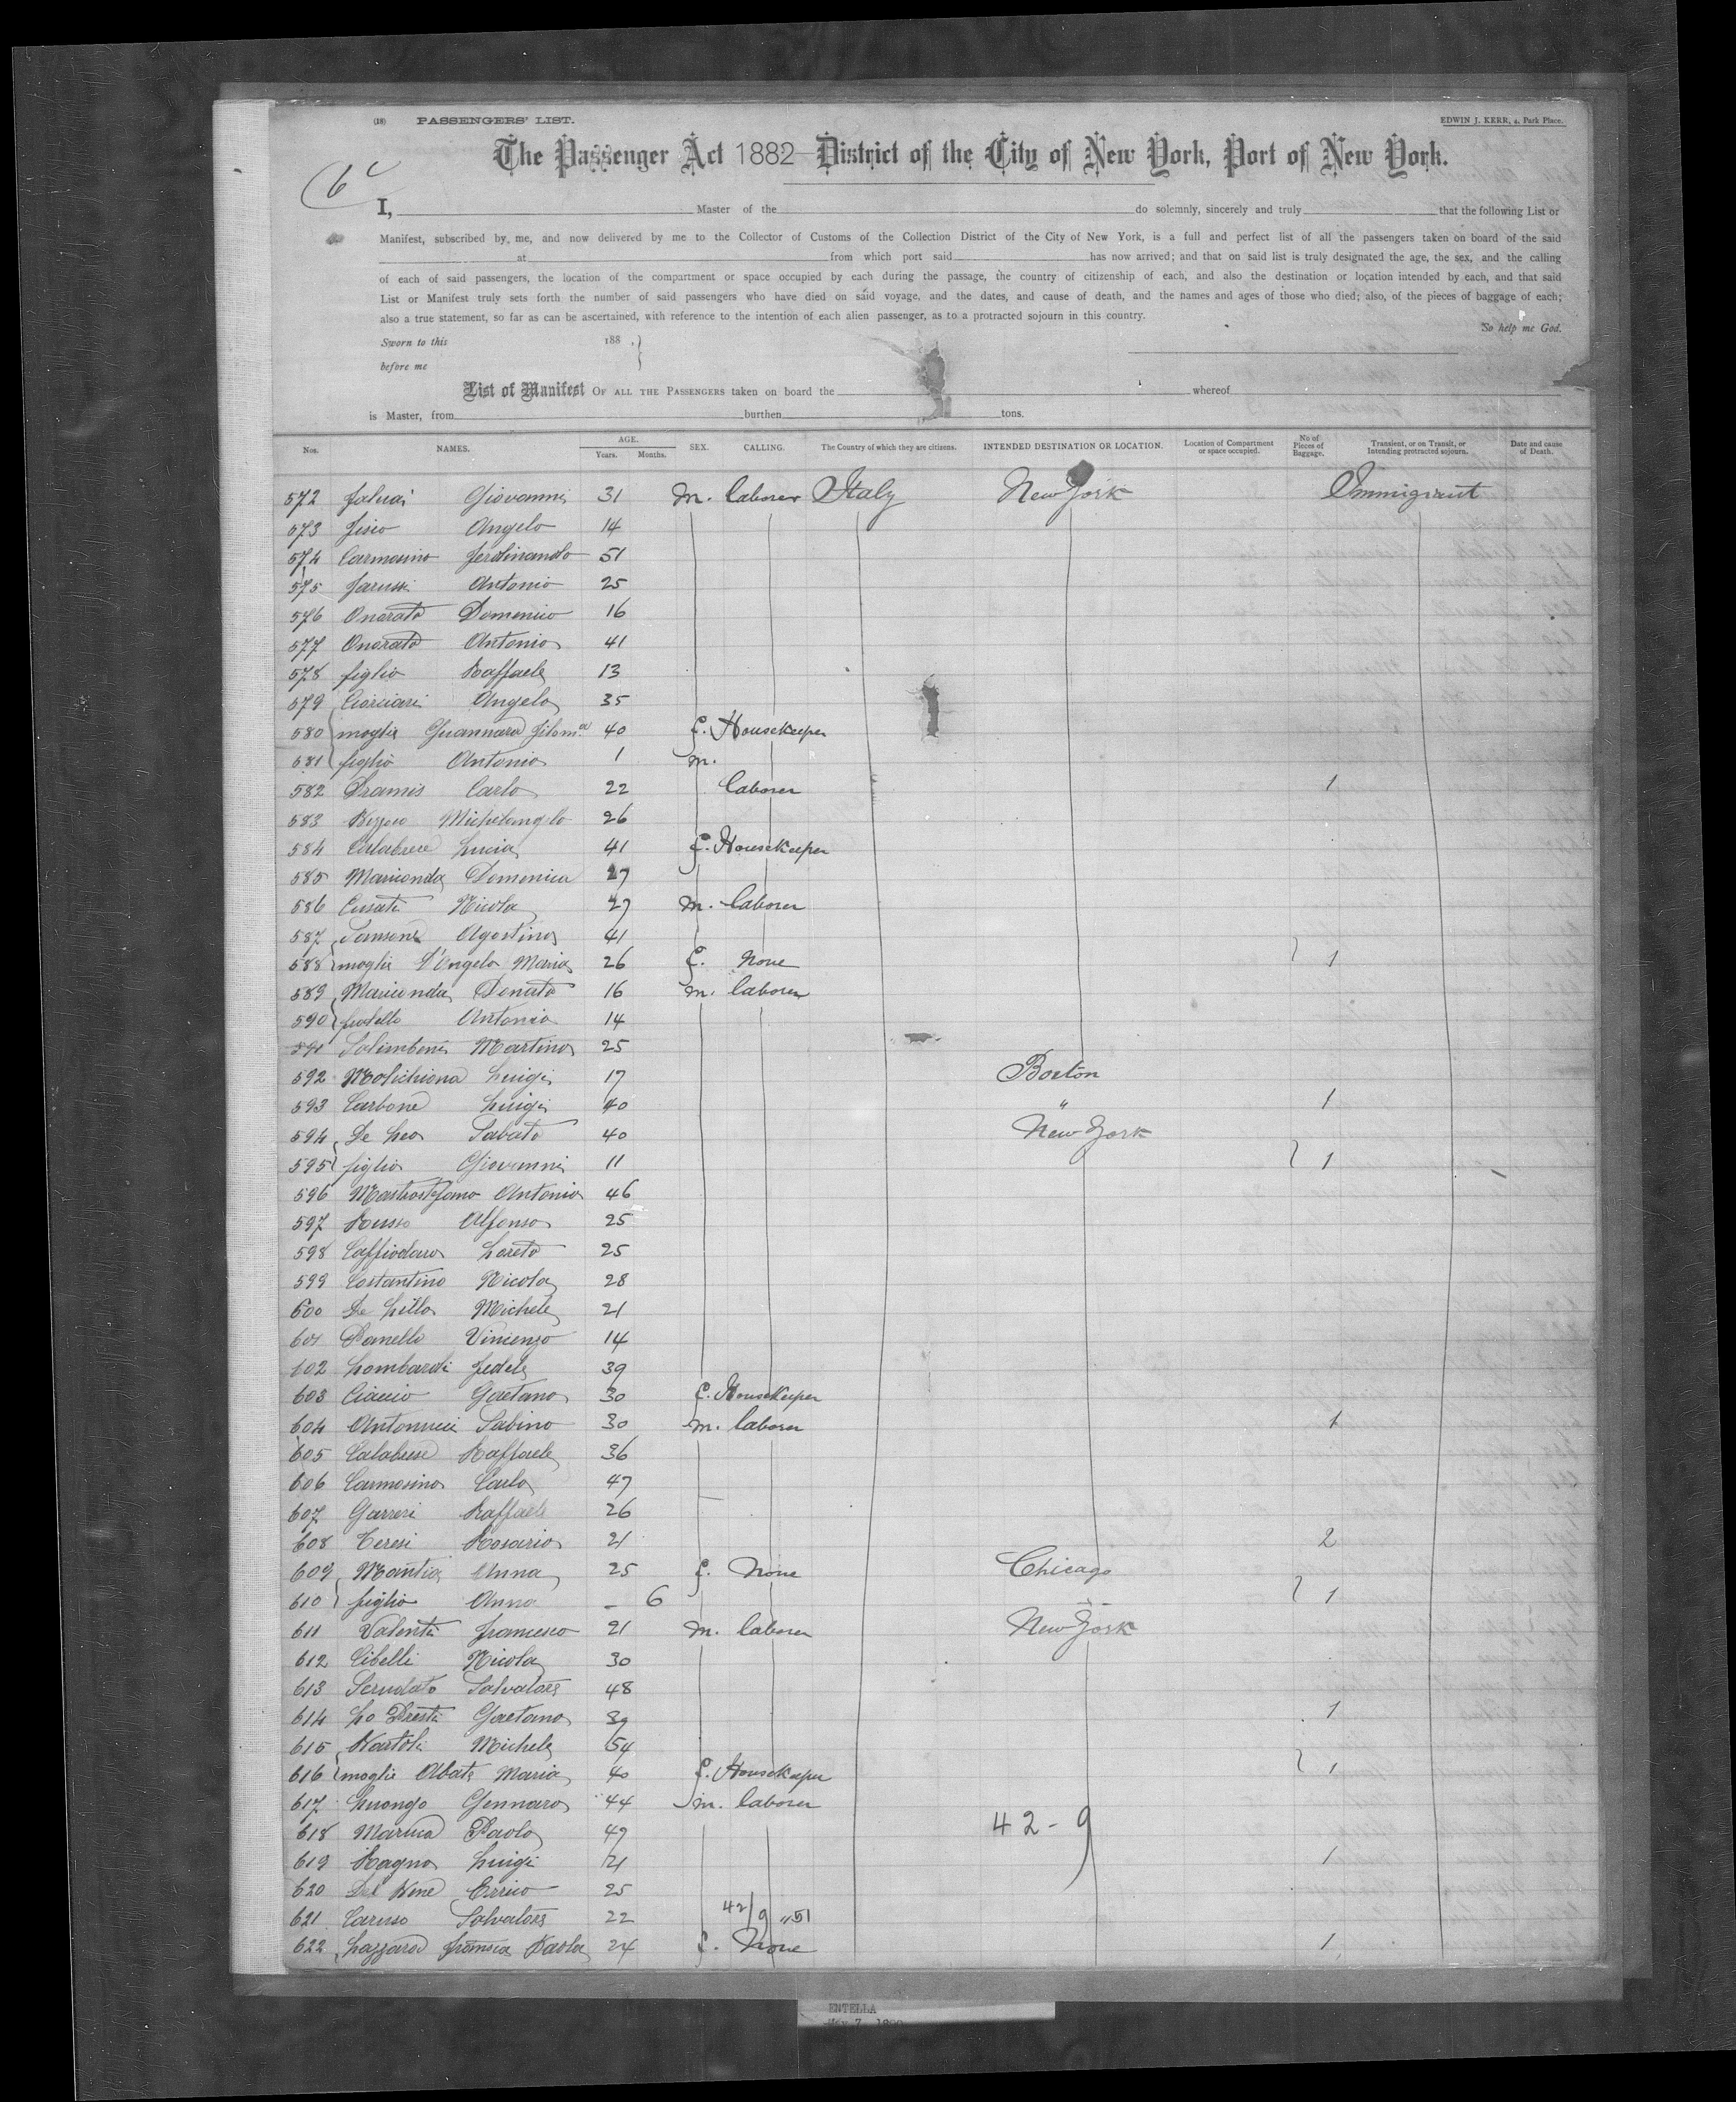 (18) PASSENGERS' LIST. EDWIN J. KERR, 4, Park Place.
The Passenger Act 1882 District of the City of New York, Port of New York.
6
I, Master of the do solemnly, sincerely and truly that the following List or
Manifest, subscribed by me, and now delivered by me to the Collector of Customs of the Collection District of the City of New York, is a full and perfect list of all the passengers taken on board of the said
at from which port said has now arrived; and that on said list is truly designated the age, the sex, and the calling
of each of said passengers, the location of the compartment or space occupied by each during the passage, the country of citizenship of each, and also the destination or location intended by each, and that said
List or Manifest truly sets forth the number of said passengers who have died on said voyage, and the dates, and cause of death, and the names and ages of those who died; also, of the pieces of baggage of each;
also a true statement, so far as can be ascertained, with reference to the intention of each alien passenger, as to a protracted sojourn in this country.
So help me God.
Sworn to this 188 ,
before me
List of Manifest OF ALL THE PASSENGERS taken on board the whereof
is Master, from burthen tons.
Nos. NAMES. AGE. Years. Months. SEX. CALLING. The Country of which they are citizens. INTENDED DESTINATION OR LOCATION. Location of Compartment or space occupied. No of Pieces of Baggage. Transient, or on Transit, or Intending protracted sojourn. Date and cause of Death.
572 Giovanni 31 m. laborer Italy New York Immigrant
573 Angelo 14
574 Carmosino Ferdinando 51
575 Farussi Antonio 25
576 Onorato Domenico 16
577 Onorato Antonio 41
578 figlio Raffaele 13
579 Angelo 35
580 moglie Guannara Filom.a 40 f. Housekeeper
581 figlio Antonio 1 m.
582 Dramis Carlo 22 laborer 1
583 Michelangelo 26
584 Calabrese Lucia 41 f. Housekeeper
585 Marionda Domenica 27
586 Cusati Nicola 27 m. laborer
587 Sansone Agostino 41
588 moglie D'Angelo Maria 26 f. None 1
589 Donato 16 m. laborer
590 fratello Antonio 14
591 Salimbeni Martino 25
592 Molichiona Luigi 17 Boston
593 Carbone Luigi 40 " 1
594 De Leo Sabato 40 New York
595 figlio Giovanni 11 1
596 Mastrostefano Antonio 46
597 Russo Alfonso 25
598 Loreto 25
599 Costantino Nicola 28
600 De Lillo Michele 21
601 Panello Vincenzo 14
602 Lombardi Fedele 39
603 Ciaccio Gaetano 30 f. Housekeeper
604 Antonucci Sabino 30 m. laborer 1
605 Calabrese Raffaele 36
606 Carmosino Carlo 47
607 Garreri Raffaele 26
608 Teresi Rosario 21 2
609 Mantia Anna 25 f. None Chicago
610 figlio Anna - 6 1
611 Valenti Francesco 21 m. laborer New York
612 Cibelli Nicola 30
613 Scrudato Salvatore 48
614 Lo Presti Gaetano 39 1
615 Michele 54
616 moglie Abate Maria 40 f. Housekeeper 1
617 Luongo Gennaro 44 m. laborer
618 Paolo 47 42-9
619 Ragno Luigi 21 1
620 Errico 25
621 Caruso Salvatore 22 42/9 " 51
622 Lazzaro Paola 24 f. None 1
ENTELLA